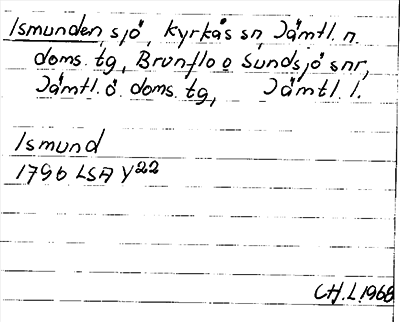 Ismunden sjö, Kyrkås sn, Jämtl. n.
doms. tg, Brunflo o Sundsjö snr,
Jämtl. ö. doms. tg, Jämtl. l.
Ismund
1796 LSA Y22
CH. L. 1968